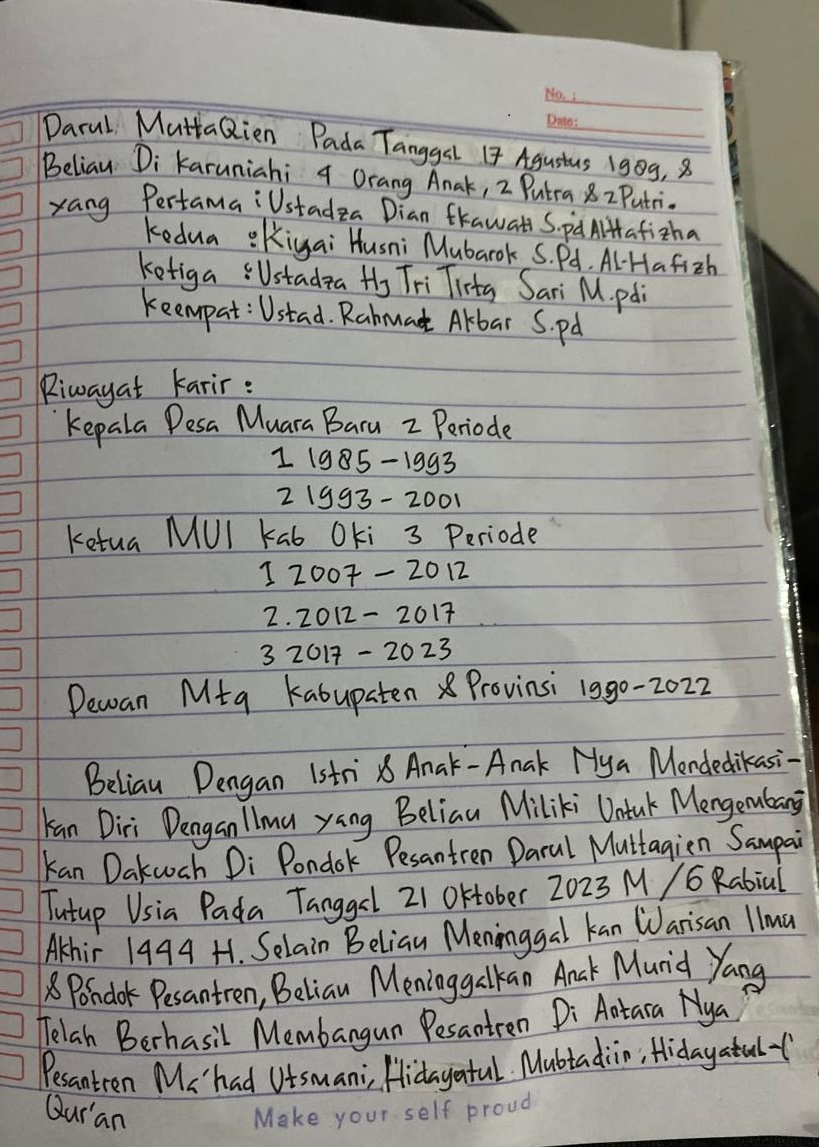 No. :
Date:
Darul MuttaQien Pada Tanggal 17 Agustus 1989, &
Beliau Di Karuniahi 4 Orang Anak, 2 Putra & 2 Putri.
yang Pertama : Ustadza Dian Ekawati S.pd Al-Hafizha
Kedua : Kiyai Husni Mubarok S.Pd. AL-Hafizh
Ketiga : Ustadza Hj Tri Tirta Sari M.pdi
Keempat : Ustad. Rahmat Akbar S.pd
Riwayat Karir :
Kepala Desa Muara Baru 2 Periode
1 1985 - 1993
2 1993 - 2001
Ketua MUI Kab Oki 3 Periode
1 2007 - 2012
2. 2012 - 2017
3 2017 - 2023
Dewan Mtq Kabupaten & Provinsi 1990-2022
Beliau Dengan Istri & Anak-Anak Nya Mendedikasi-
kan Diri Dengan Ilmu yang Beliau Miliki Untuk Mengembang
kan Dakwah Di Pondok Pesantren Darul Muttaqien Sampai
Tutup Usia Pada Tanggal 21 Oktober 2023 M / 6 Rabiul
Akhir 1444 H. Selain Beliau Meninggal kan Warisan Ilmu
& Pondok Pesantren, Beliau Meninggalkan Anak Murid Yang
Telah Berhasil Membangun Pesantren Di Antara Nya
Pesantren Ma'had Utsmani, Hidayatul Mubtadiin, Hidayatul-
Qur'an
Make your self proud